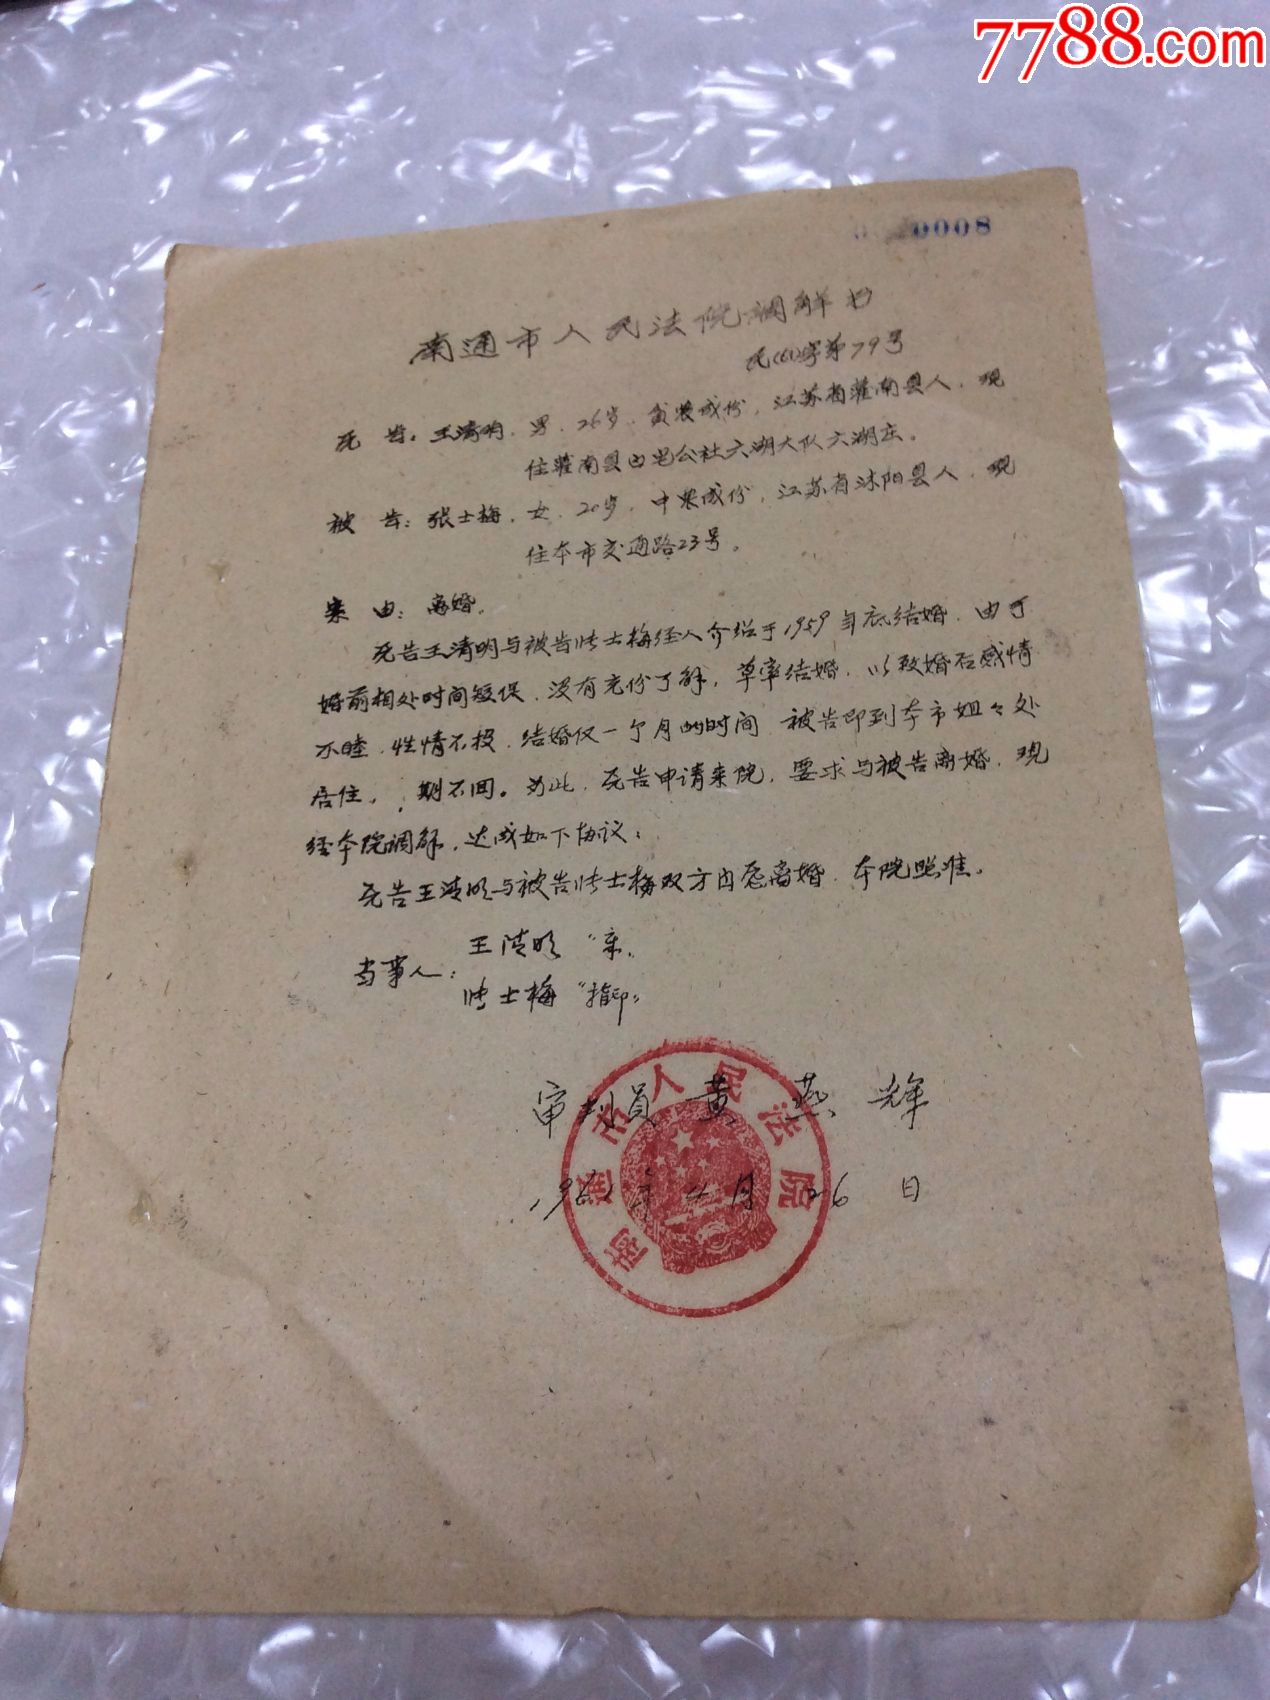 7788.com
0008
南通市人民法院调解书
民(61)字第79号
元告:王清明,男,26岁,贫农成份,江苏省灌南县人,现
住灌南县白皂公社六湖大队六湖庄。
被告:张士梅,女,20岁,中农成份,江苏省沭阳县人,现
住本市交通路23号。
案由:离婚。
元告王清明与被告张士梅经人介绍于1959年底结婚,由于
婚前相处时间短促,没有充份了解,草率结婚,以致婚后感情
不睦,性情不投,结婚仅一个月的时间,被告即到本市姐々处
居住,期不回。为此,元告申请来院,要求与被告离婚,现
经本院调解,达成如下协议:
元告王清明与被告张士梅双方自愿离婚,本院照准。
当事人:
王清明“章”
张士梅“指印”
审判员 黄燕辉
1961年4月26日
南通市人民法院